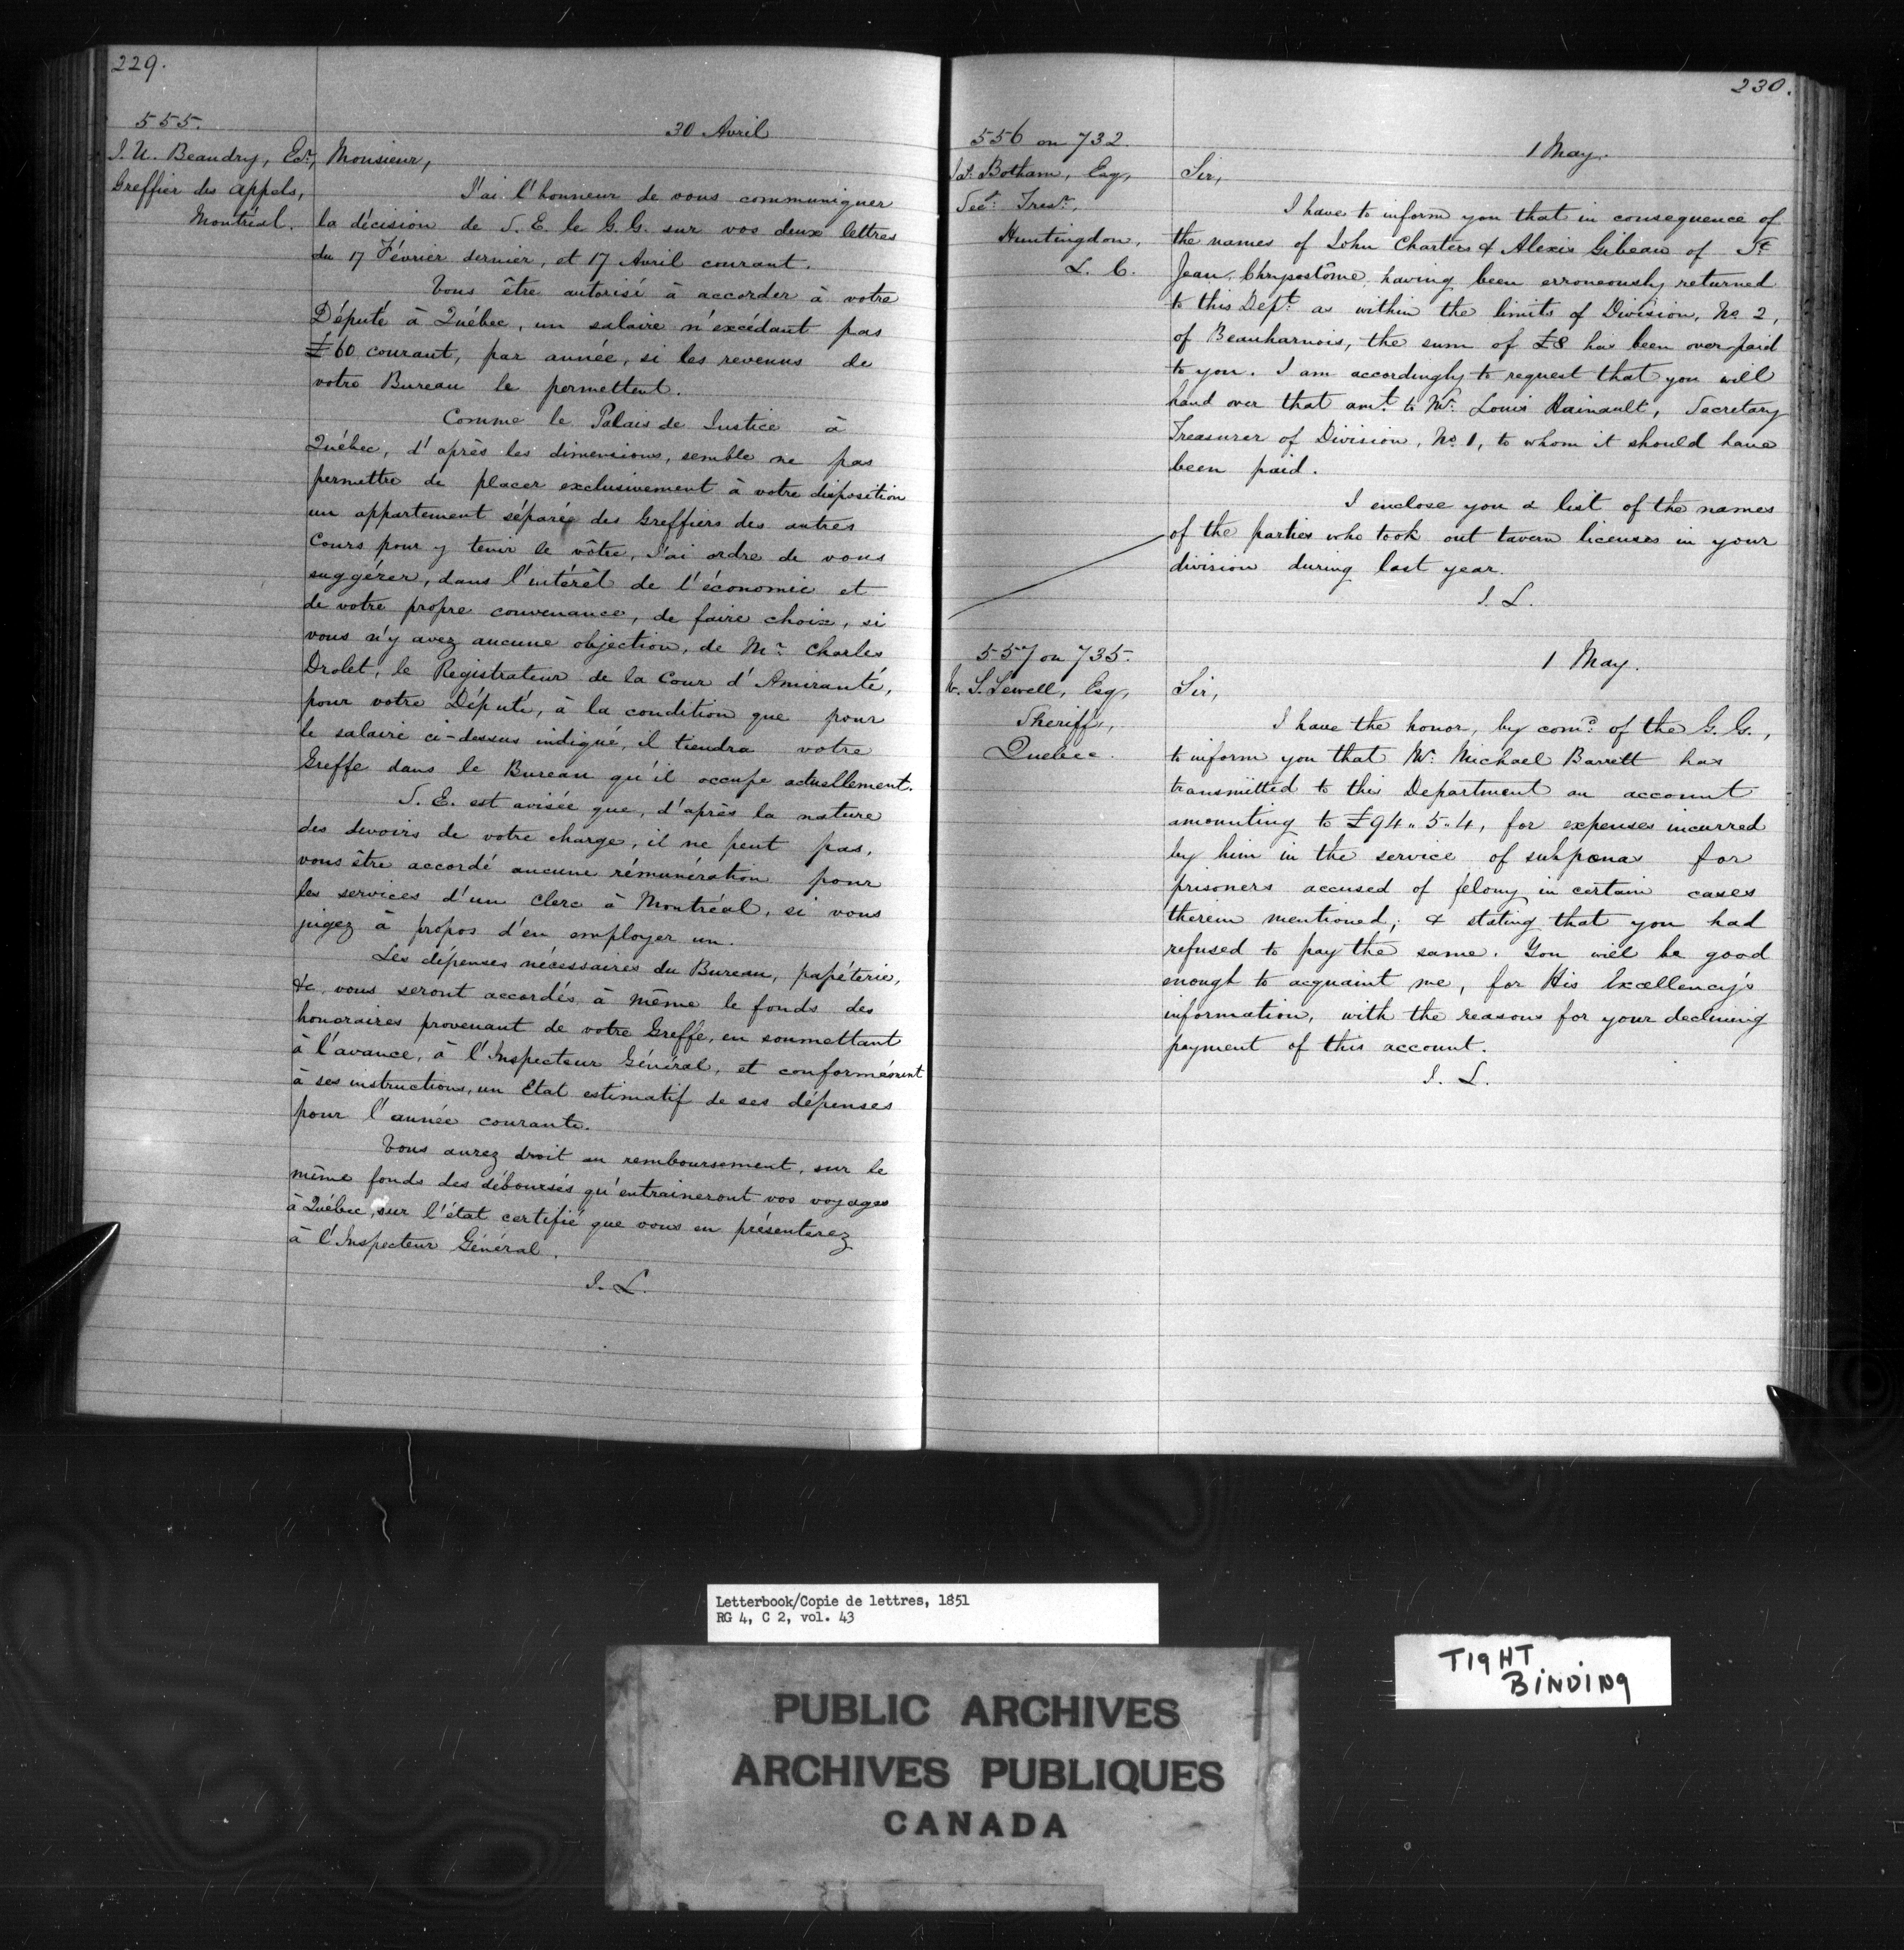 229.
555.
J. U. Beaudry, Ecr,
Greffier des Appels,
Montréal.
30 Avril
Monsieur,
J'ai l'honneur de vous communiquer
la décision de S. E. le G. G. sur vos deux lettres
du 17 Février dernier, et 17 Avril courant.
Vous être autorisé à accorder à votre
Député à Québec, un salaire n'excédant pas
£60 courant, par année, si les revenus de
votre Bureau le permettent.
Comme le Palais de Justice à
Québec, d'après les dimensions, semble ne pas
permettre de placer exclusivement à votre disposition
un appartement séparée des Greffiers des autres
Cours pour y tenir le vôtre, J'ai ordre de vous
suggérer, dans l'intérêt de l'économie et
de votre propre convenance, de faire choix, si
vous n'y avez aucune objection, de Mr. Charles
Drolet, le Registrateur de la Cour d'Amirauté,
pour votre Député, à la condition que pour
le salaire ci-dessus indiqué, il tiendra votre
Greffe dans le Bureau qu'il occupe actuellement.
S. E. est avisée que, d'après la nature
des devoirs de votre charge, il ne peut pas,
vous être accordé aucune rémunération pour
les services d'un Clerc à Montréal, si vous
jugez à propos d'en employer un.
Les dépenses nécessaires du Bureau, papéterie,
&c, vous seront accordés à même le fonds des
honoraires provenant de votre Greffe, en soumettant
à l'avance, à l'Inspecteur Général, et conformément
à ses instructions, un Etat estimatif de ses dépenses
pour l'année courante.
Vous aurez droit au remboursement, sur le
même fonds des déboursés qu'entraineront vos voyages
à Québec, sur l'état certifié que vous en présenterez
à l'Inspecteur Général.
J. L.
230.
556 on 732.
Jas. Botham, Esq,
Sec: Tresr,
Huntingdon,
L. C.
1 May.
Sir,
I have to inform you that in consequence of
the names of John Charters & Alexis Gibeau of St
Jean Chrysostôme, having been erroneously returned
to this Dept. as within the limits of Division, No. 2,
of Beauharnois, the sum of £8 has been over paid
to you. I am accordingly to request that you will
hand over that amt. to Mr. Louis Hainault, Secretary
Treasurer of Division, No. 1, to whom it should have
been paid.
I enclose you a list of the names
of the parties who took out tavern licenses in your
division during last year.
J. L.
557 on 735.
W. S. Sewell, Esq,
Sheriff,
Quebec.
1 May.
Sir,
I have the honor, by comd. of the G. G.,
to inform you that Mr. Michael Barrett has
transmitted to this Department an account
amounting to £94.. 5.. 4, for expenses incurred
by him in the service of subpœnas for
prisoners accused of felony in certain cases
therein mentioned; & stating that you had
refused to pay the same. You will be good
enough to acquaint me, for His Excellency's
information, with the reasons for your declining
payment of this account.
J. L.
Letterbook/Copie de lettres, 1851
RG 4, C 2, vol. 43
TIGHT
BINDING
PUBLIC ARCHIVES
ARCHIVES PUBLIQUES
CANADA